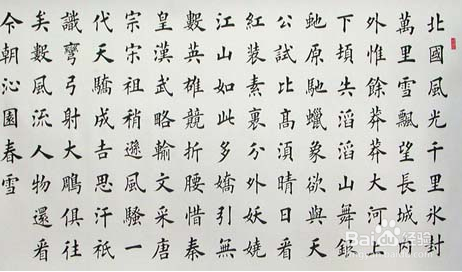 北國風光千里冰封
萬里雪飄望長城内
外惟餘莽莽大河上
下頓失滔滔山舞銀
虵原馳蠟象欲與天
公試比高須晴日看
紅装素裹分外妖嬈
江山如此多嬌引無
數英雄競折腰惜秦
皇漢武略輸文采唐
宗宋祖稍遜風騷一
代天驕成吉思汗祇
識彎弓射大鵰俱往
矣數風流人物還看
今朝沁園春雪
Baidu经验